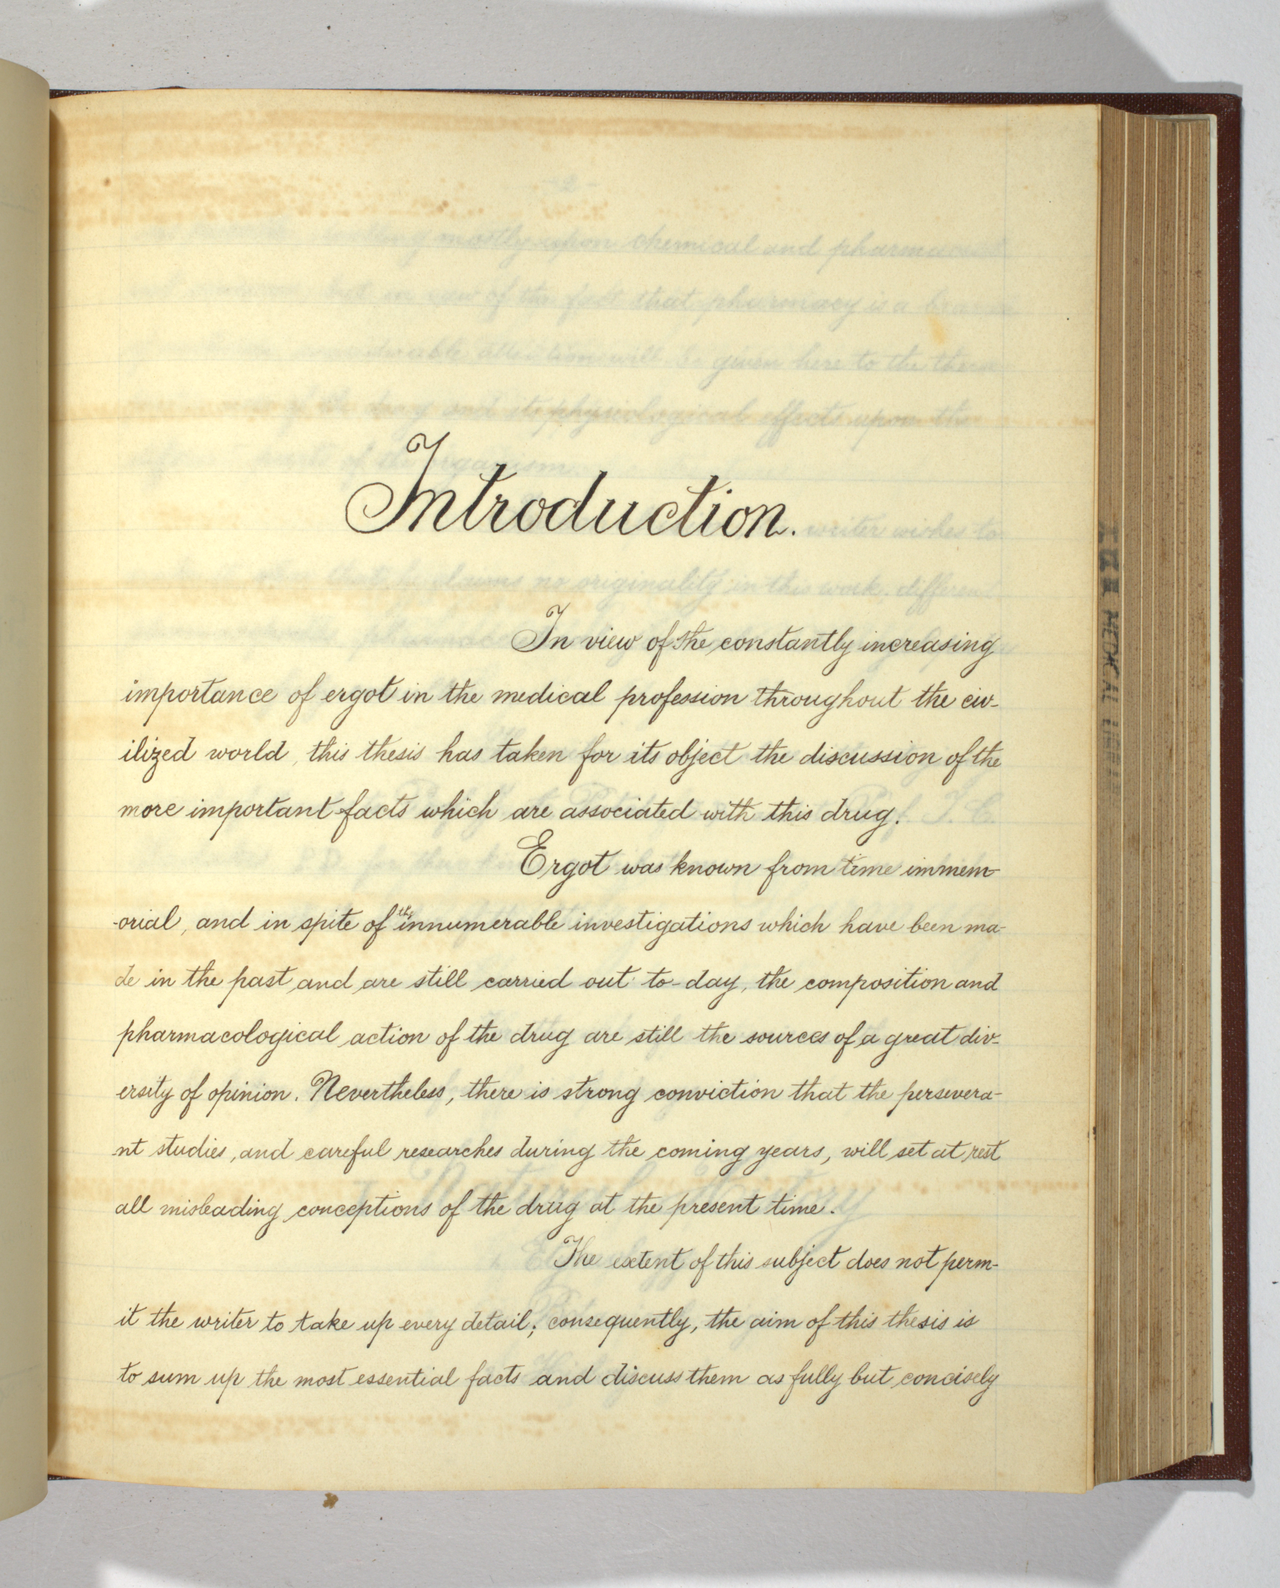 Introduction.
In view of the constantly increasing
importance of ergot in the medical profession throughout the civ-
ilized world, this thesis has taken for its object the discussion of the
more important facts which are associated with this drug.
Ergot was known from time immem-
-orial, and in spite of the innumerable investigations which have been ma-
de in the past and are still carried out to-day, the composition and
pharmacological action of the drug are still the sources of a great div-
ersity of opinion. Nevertheless, there is strong conviction that the persevera-
nt studies, and careful researches during the coming years, will set at rest
all misleading conceptions of the drug at the present time.
The extent of this subject does not perm-
it the writer to take up every detail; consequently, the aim of this thesis is
to sum up the most essential facts and discuss them as fully but concisely
MEDICAL